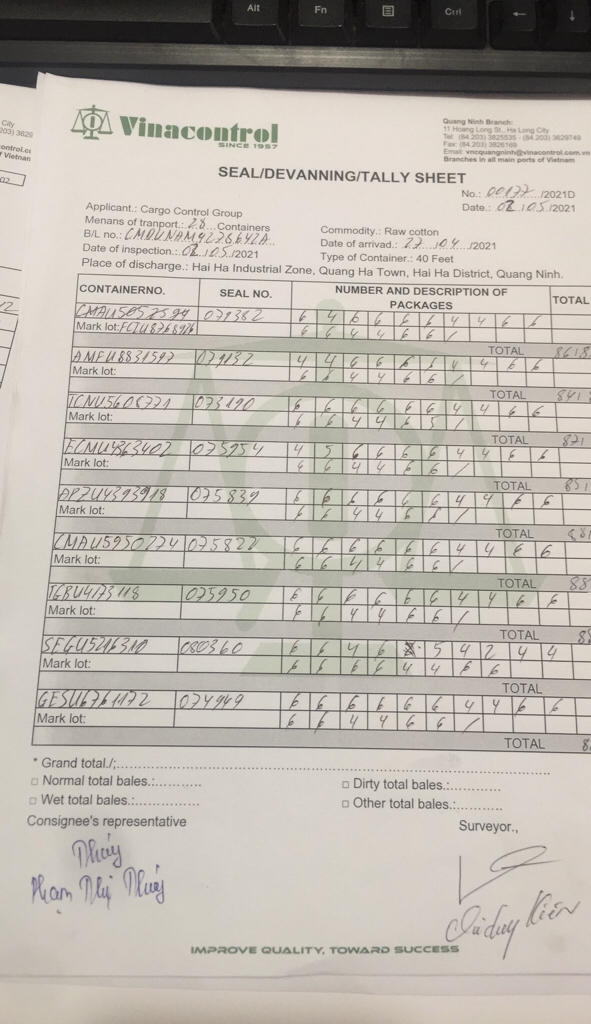 Alt
Fn
Ctrl
City
203) 3829
ontrol.co
f Vietnam
02
Vinacontrol
SINCE 1957
Quang Ninh Branch:
11 Hoang Long St., Ha Long City
Tel: (84.203) 3825535 - (84.203) 3829749
Fax: (84.203) 3826169
Email: vncquangninh@vinacontrol.com.vn
Branches in all main ports of Vietnam
SEAL/DEVANNING/TALLY SHEET
No.: 00177 /2021D
Date.: 02/05/2021
Applicant.: Cargo Control Group
Menans of tranport.: 28 Containers
Commodity.: Raw cotton
B/L no.: CMDUNAM4278642A
Date of arrivad.: 27/04/2021
Date of inspection.: 02/05/2021
Type of Container.: 40 Feet
Place of discharge.: Hai Ha Industrial Zone, Quang Ha Town, Hai Ha District, Quang Ninh.
CONTAINERNO. SEAL NO. NUMBER AND DESCRIPTION OF PACKAGES TOTAL
079382 6 4 6 6 6 6 4 4 6 6
Mark lot: 6 6 4 4 6 6 /
TOTAL 86
AMFU8831597 079132 4 4 6 6 6 6 4 4 6 6
Mark lot: 6 6 4 4 6 6 /
TOTAL 84
073190 6 6 6 6 6 6 4 4 6 6
Mark lot: 6 6 4 4 6 5 /
TOTAL 87
FCMU4363402 075954 4 5 6 6 6 6 4 4 6 6
Mark lot: 6 6 4 4 6 6 /
TOTAL 85
APZU4393918 075839 6 6 6 6 6 6 4 4 6 6
Mark lot: 6 6 4 4 6 /
TOTAL 88
CMAU5950274 075822 6 6 6 6 6 6 4 4 6 6
Mark lot: 6 6 4 4 6 6 /
TOTAL 88
TGBU4173118 075950 6 6 6 6 6 6 4 4 6 6
Mark lot: 6 6 4 4 6 6 /
TOTAL 8
SEGU5216310 080360 6 6 4 6 5 4 2 4 4
Mark lot: 6 6 6 6 4 4 6 6
TOTAL
GESU6761172 074949 6 6 6 6 6 6 4 4 6 6
Mark lot: 6 6 4 4 6 6 /
TOTAL 8
* Grand total./;
□ Normal total bales.:
□ Dirty total bales.:
□ Wet total bales.:
□ Other total bales.:
Consignee's representative
Surveyor.,
Thúy
Phạm Thị Thúy
IMPROVE QUALITY, TOWARD SUCCESS